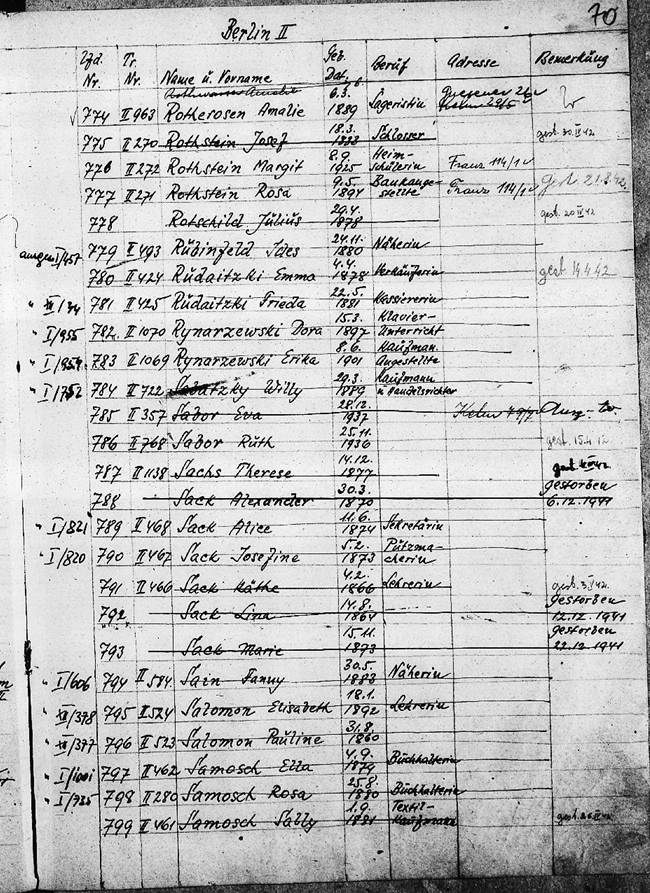 70
Berlin II
Lfd. Nr. Tr. Nr. Name u. Vorname Geb. Dat. Beruf Adresse Bemerkung
774 II 963 Rotherosen Amalie 6.3. 1889 Lageristin
775 II 270 Rothstein Josef 18.3. 1888 Schlosser gest. 30.IV.42
776 II 272 Rothstein Margit 8.9. 1925 Heim-schülerin Franz 114/1 gest. 21.8.42
777 II 271 Rothstein Rosa 9.5. 1894 Bürange-stellte Franz 114/1
778 Rotschild Julius 29.4. 1878 gest. 20.IV.42
ausgen I/457 779 II 493 Rubinfeld Ides 24.11. 1880 Näherin
780 II 424 Rudaitzki Emma 4.4. 1878 Verkäuferin gest. 14.4.42
" 781 II 425 Rudaitzki Frieda 22.5. 1881 Kassiererin
" I/955 782 II 1070 Rynarzewski Dora 15.3. 1897 Klavier-Unterricht
" 783 II 1069 Rynarzewski Erika 8.6. 1901 Kaufman. Angestellte
" 784 II 722 Willy 29.3. 1889 Kaufmann u Handelsrichter
785 II 357 Sabor Eva 28.12. 1937
786 II 768 Sabor Ruth 25.11. 1936 gest. 15.4.42
787 II 1138 Sachs Therese 14.12. 1877 gest.
788 Sack Alexander 30.3. 1870 gestorben 6.12.1941
" I/821 789 II 468 Sack Alice 11.6. 1874 Sekretärin
" I/820 790 II 467 Sack Josefine 5.2. 1873 Putzma-cherin
791 II 466 Sack Käthe 4.2. 1866 Lehrerin gest. 3.V.42
792 Sack Lina 14.8. 1864 gestorben 12.12.1941
793 Sack Marie 15.11. 1893 gestorben 22.12.1941
" I/606 794 II 584 Sain Fanny 30.5. 1883 Näherin
" XII/378 795 II 524 Salomon Elisabeth 18.1. 1892 Lehrerin
" XII/377 796 II 523 Salomon Pauline 31.8. 1860
" I/1001 797 II 462 Samosch Ella 4.9. 1879 Buchhalterin
" I/735 798 II 280 Samosch Rosa 25.8. 1880 Buchhalterin
799 II 461 Samosch Sally 1.9. 1881 Textil-Kaufmann gest.